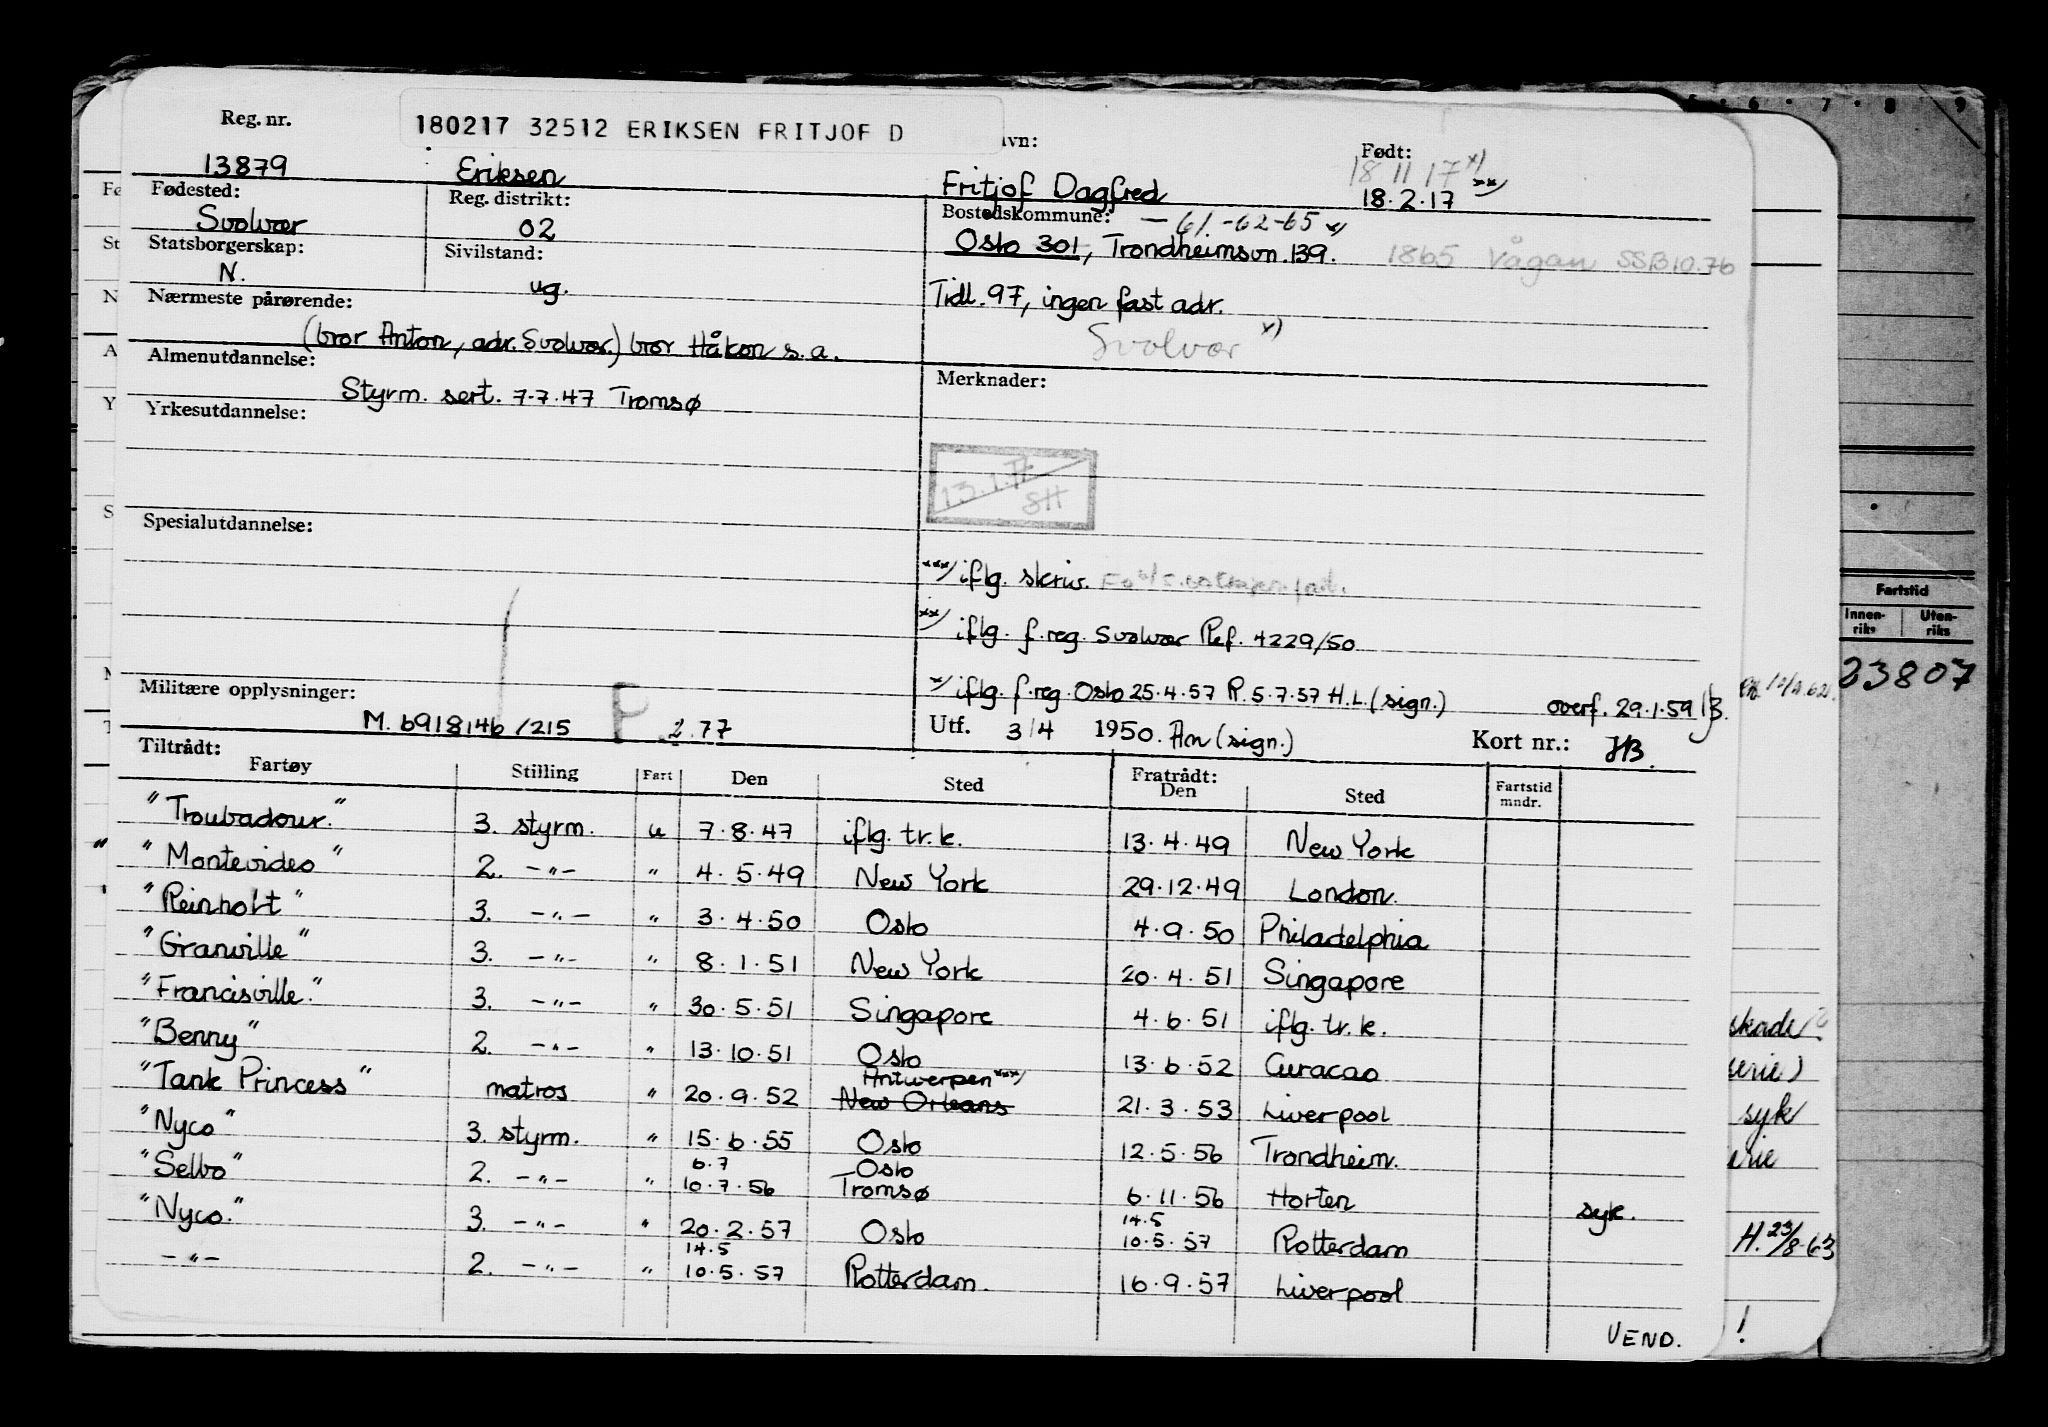 Reg. nr.
180217 32512 ERIKSEN FRITJOF D
vn:
Født:
18 11 17 x)
13879 Eriksen Fritjof Dagfred 18.2.17 xx)
Fødested: Reg. distrikt: Bostedskommune: — 61.-62-65 x)
Svolvær 02 Oslo 301, Trondheimsvn. 139. 1865 Vågan SSB10.76
Statsborgerskap: Sivilstand:
N. ug. Tidl. 97, ingen fast adr.
Nærmeste pårørende:
(bror Anton, adr. Svolvær.) bror Håkon s.a. Svolvær x)
Almenutdannelse: Merknader:
Styrm. sert. 7.7.47 Tromsø
Yrkesutdannelse:
SH
Spesialutdannelse:
xxx) iflg. skriv.
xx) iflg. f.reg. Svolvær Ref. 4229/50
x) iflg. f.reg. Oslo 25.4.57 R. 5.7.57 H.L (sign.) overf. 29.1.59
Militære opplysninger:
M. 6918146/215 P 2.77 Utf. 3/4 1950. An (sign.) Kort nr.: HB.
Tiltrådt: Fratrådt:
Fartøy Stilling Fart Den Sted Den Sted Fartstid mndr.
"Troubadour." 3. styrm. u 7.8.47 iflg. tr.k. 13.4.49 New York
"Montevideo" 2. -"- " 4.5.49 New York 29.12.49 London.
"Reinholt" 3. -"- " 3.4.50 Oslo 4.9.50 Philadelphia
"Granville" 3. -"- " 8.1.51 New York 20.4.51 Singapore
"Francisville." 3. -"- " 30.5.51 Singapore 4.6.51 iflg. tr.k.
"Benny" 2. -"- " 13.10.51 Oslo 13.6.52 Curacao
Antwerpen xxx)
"Tank Princess" matros " 20.9.52 New Orleans 21.3.53 Liverpool
"Nyco" 3. styrm. " 15.6.55 Oslo 12.5.56 Trondheim.
6.7 Oslo
"Selbo" 2. -"- " 10.7.56 Tromsø 6.11.56 Horten syk.
14.5
"Nyco." 3. -"- " 20.2.57 Oslo 10.5.57 Rotterdam
14.5
-"- 2. -"- " 10.5.57 Rotterdam. 16.9.57 Liverpool
VEND.
Fartstid
Innen-riks Uten-riks
23807
skade
syk
H. 23/8-63
!
6 · 7 · 8 · 9